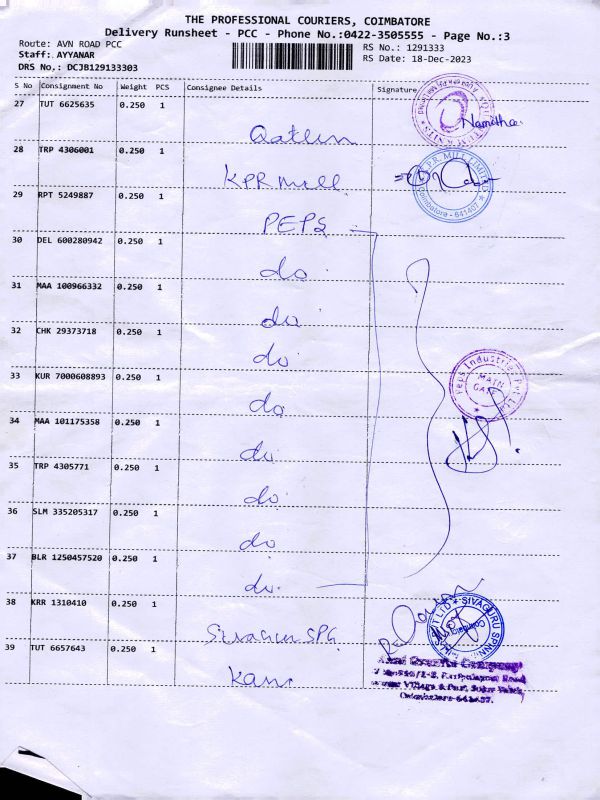 THE PROFESSIONAL COURIERS, COIMBATORE
Delivery Runsheet - PCC - Phone No.:0422-3505555 - Page No.:3
Route: AVN ROAD PCC RS No.: 1291333
Staff: AYYANAR RS Date: 18-Dec-2023
DRS No.: DCJB129133303
S No Consignment No Weight PCS Consignee Details Signature
27 TUT 6625635 0.250 1
Namitha
28 TRP 4306001 0.250 1
KPR Mill
K.P.R. MILL LIMITED
Coimbatore - 641407
29 RPT 5249887 0.250 1
PEPS
30 DEL 600280942 0.250 1
do
31 MAA 100966332 0.250 1
do
32 CHK 29373718 0.250 1
do
33 KUR 7000608893 0.250 1
do
Peps Industries Pvt Ltd
MAIN
GATE
34 MAA 101175358 0.250 1
do
35 TRP 4305771 0.250 1
do
36 SLM 335205317 0.250 1
do
37 BLR 1250457520 0.250 1
do
38 KRR 1310410 0.250 1
Sivaguru SPG
SIVAGURU SPNN
39 TUT 6657643 0.250 1
Coimbatore-641407.